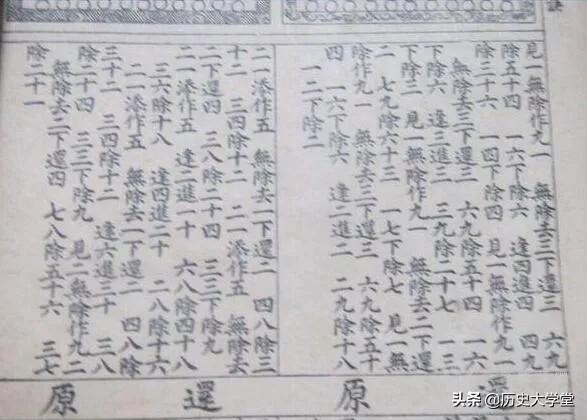 見一無除作九一 無除去三下還三 六九
除五十四 一六下除六 逢四進四 四九
除三十六 一四下除四 見一無除作九一
無除去三下還三 六九除五十四 一六
下除六 逢三進三 三九除二十七 一三
下除三 見一無除作九一 無除去二下還
二 七九除六十三 一七下除七 見一無
除作九一 無除去三下還三 六九除五十
四 一六下除六 逢二進二 二九除十八
一二下除二
還原
二一添作五 無除去一下還二 四八除三
十二 三四除十二 二一添作五 無除去
二下還四 三八除二十四 三三下除九
二一添作五 逢二進一十 六八除四十八
三六除十八 逢四進二十 二八除十六
二一添作五 無除去一下還二 四八除
三十二 三四除十二 逢六進三十 三八
除二十四 三三下除九 見二無除作九二
無除去二下還四 七八除五十六 三七
除二十一
還原
头条 @历史大学堂